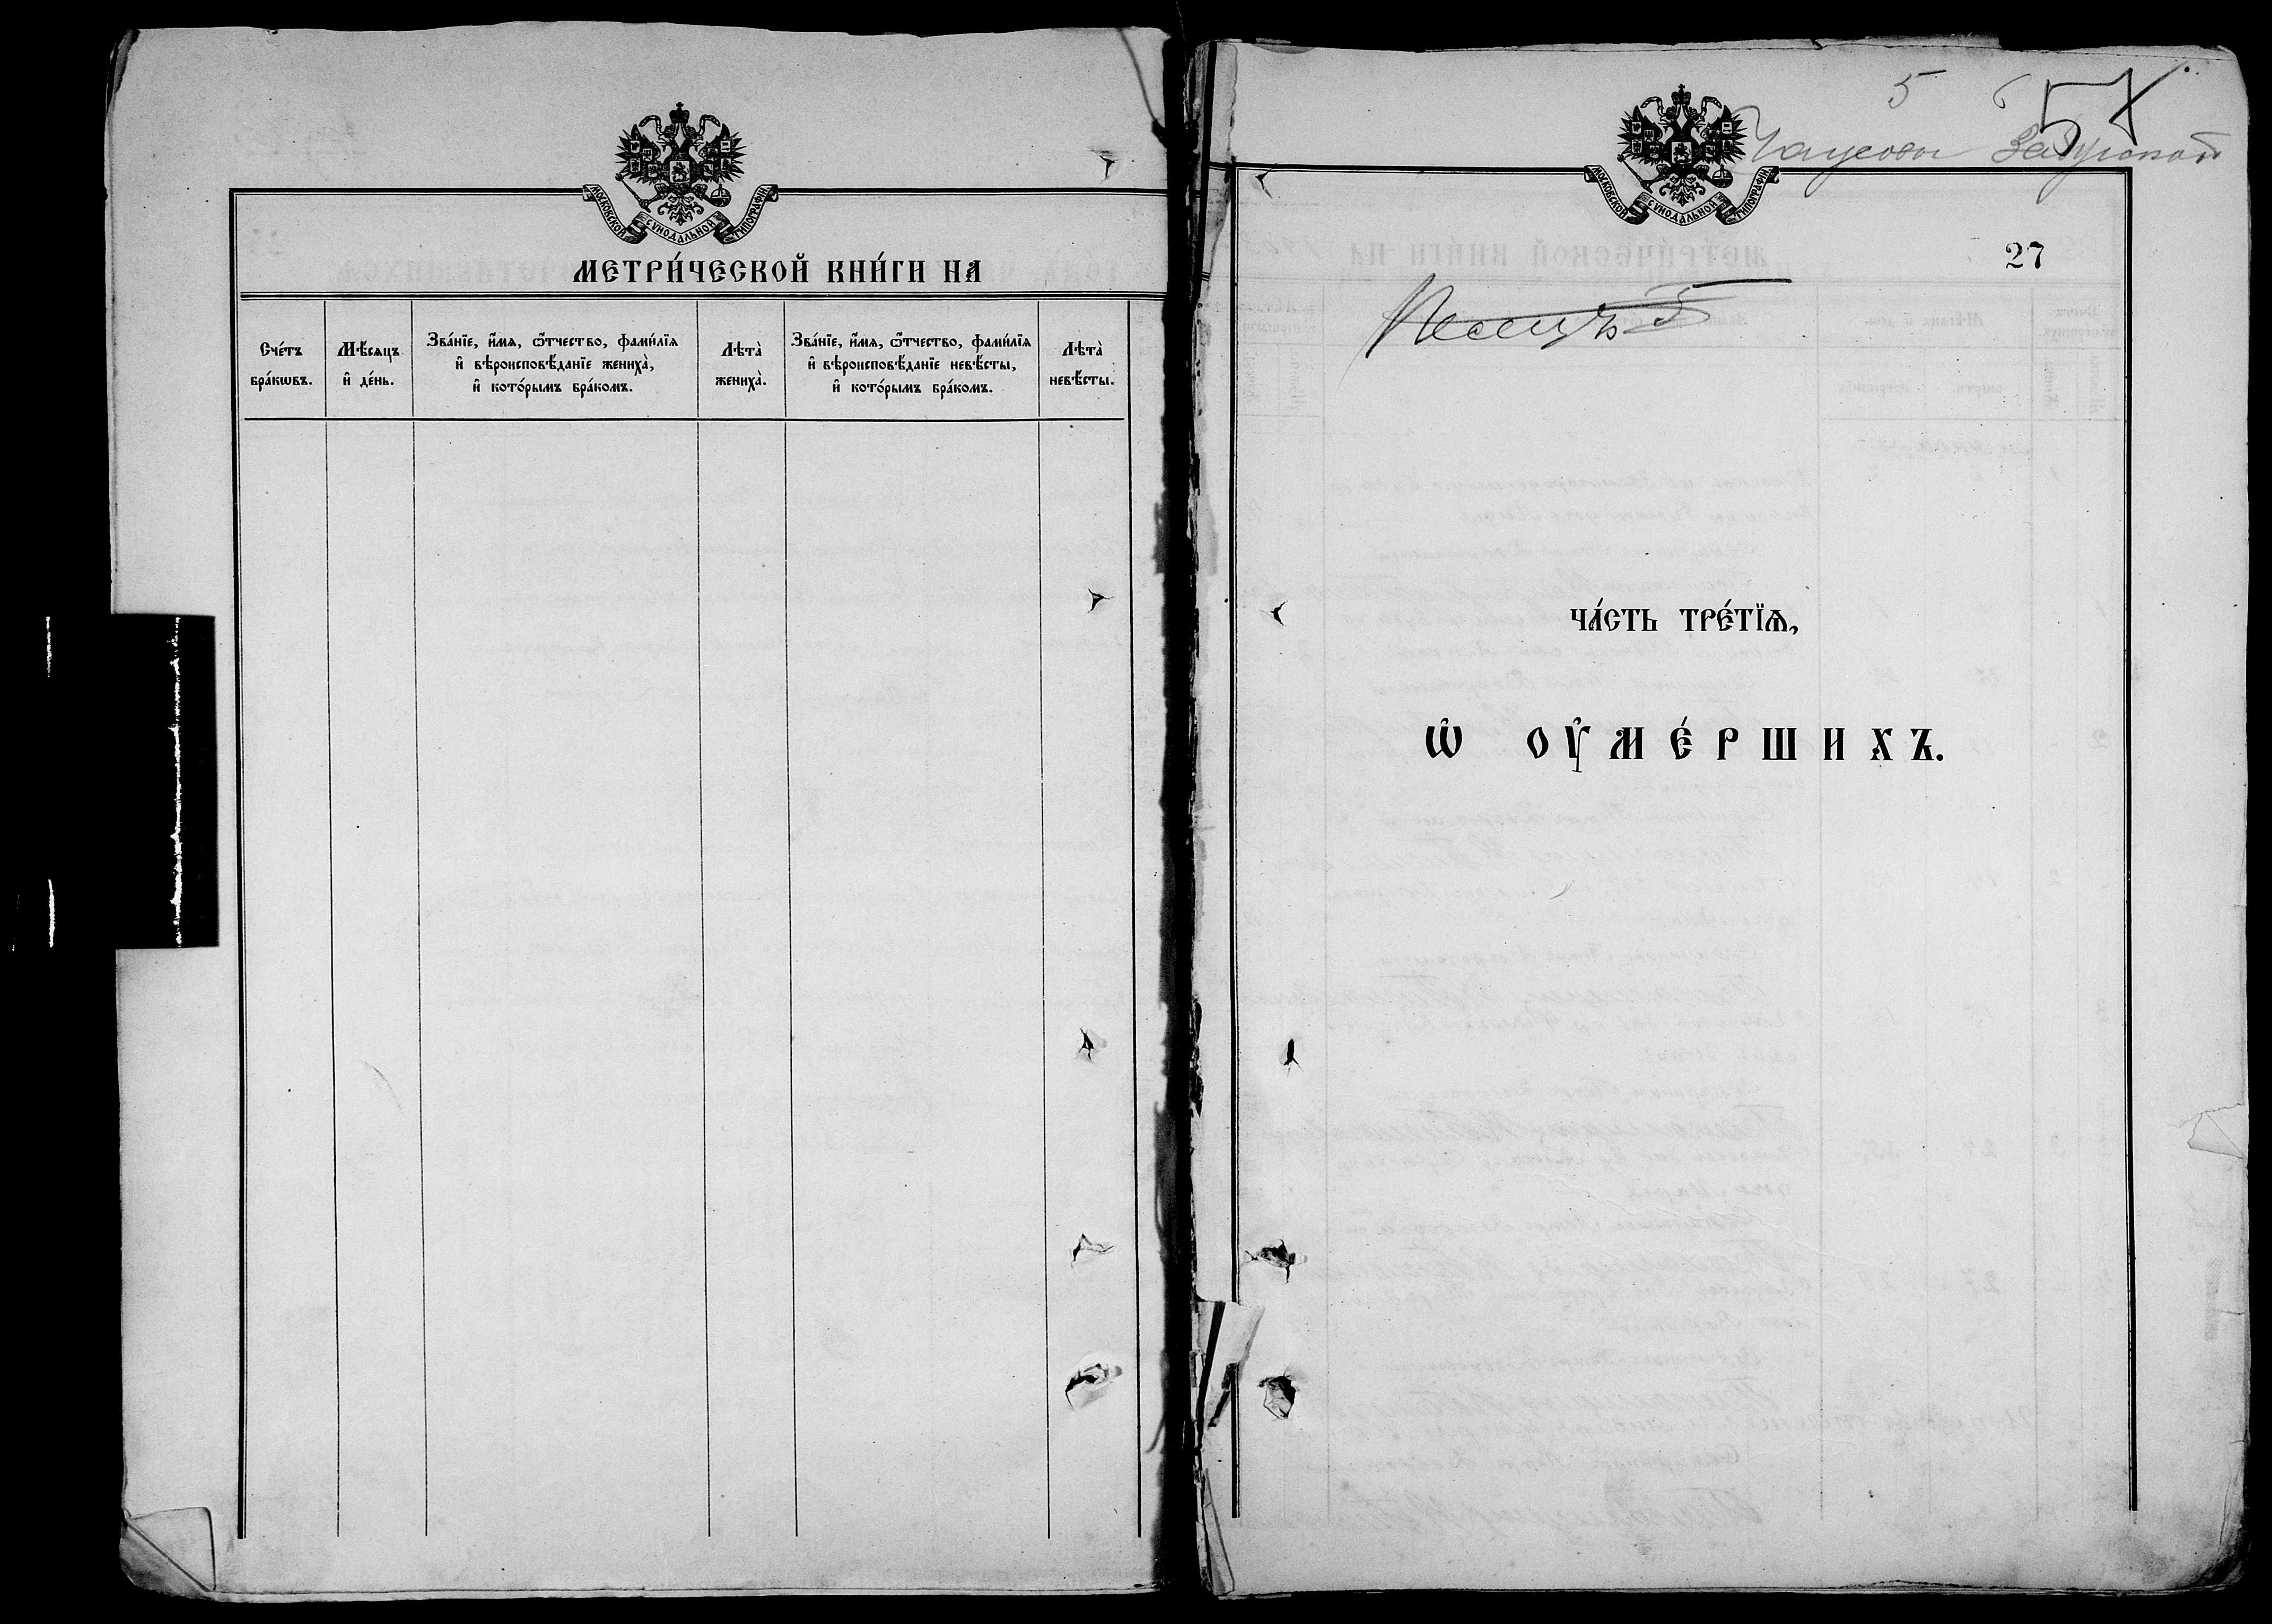 МОСКОВСКОЙ СѴНОДАЛЬНОЙ ТИПОГРАФІИ
МЕТРИ́ЧЕСКОЙ КНИ́ГИ НА
Сче́тъ
бра́кѡвъ.
Мѣ́сѧцъ
и҆ де́нь.
Зва́нїе, и҆́мѧ, ѻ҆́тчество, фами́лїѧ
и҆ вѣроисповѣ́данїе жениха̀,
и҆ кото́рымъ бра́комъ.
Лѣта̀
жениха̀.
Зва́нїе, и҆́мѧ, ѻ҆́тчество, фами́лїѧ
и҆ вѣроисповѣ́данїе невѣ́сты,
и҆ кото́рымъ бра́комъ.
Лѣта̀
невѣ́сты.
5
57
МОСКОВСКОЙ СѴНОДАЛЬНОЙ ТИПОГРАФІИ
27
ЧА́СТЬ ТРЕ́ТЇѦ,
Ѡ҆ ОУ҆МЕ́РШИХЪ.